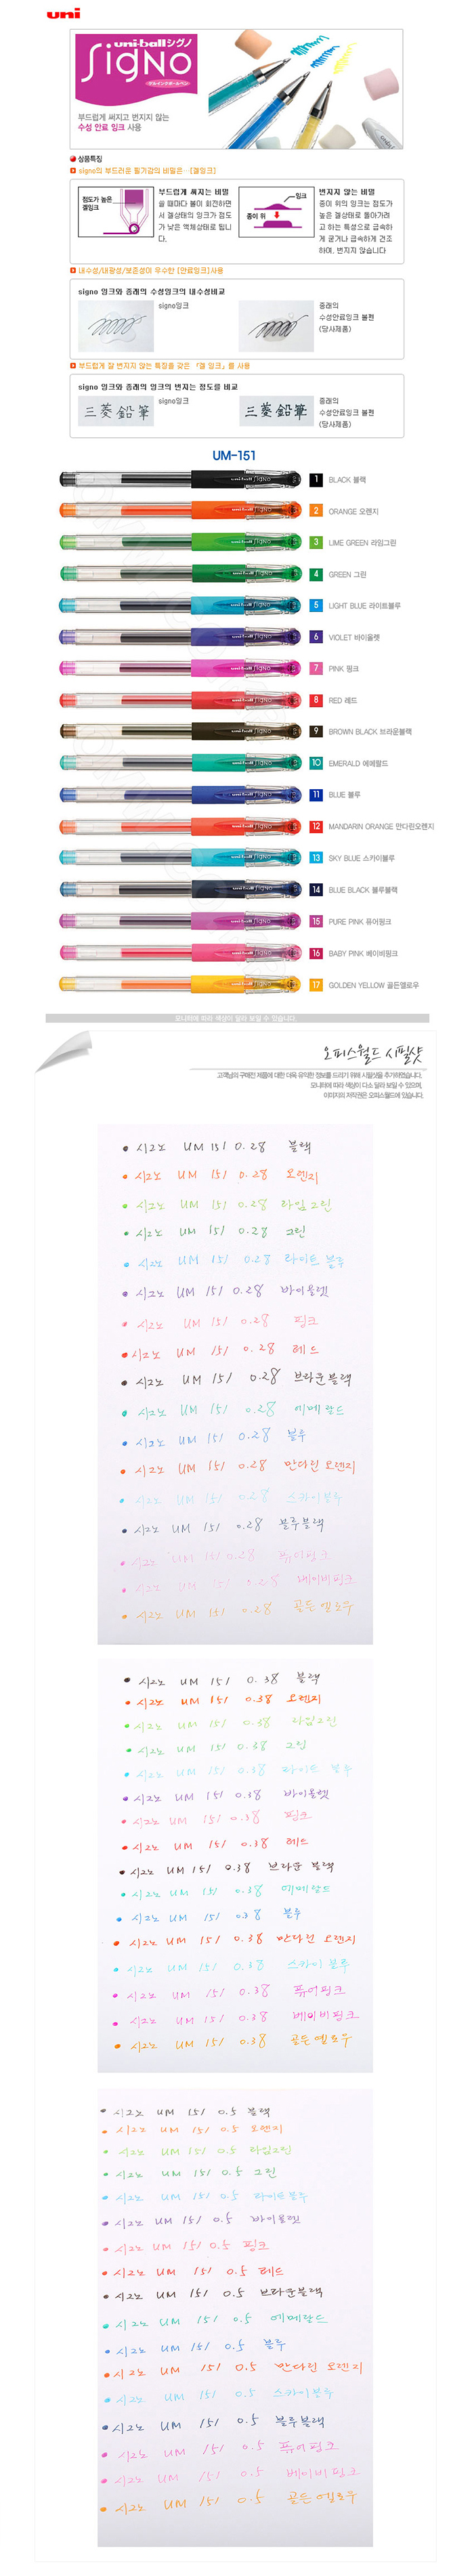 uni
uni-ball シグノ
SigNo
ゲルインクボールペン
부드럽게 써지고 번지지 않는
수성 안료 잉크 사용
상품특징
signo의 부드러운 필기감의 비밀은···[겔잉크]
점도가 높은
겔잉크
부드럽게 써지는 비밀
쓸 때마다 볼이 회전하면
서 겔상태의 잉크가 점도
가 낮은 액체상태로 됩니
다.
잉크
종이 위
번지지 않는 비밀
종이 위의 잉크는 점도가
높은 겔상태로 돌아가려
고 하는 특성으로 급속하
게 굳거나 급속하게 건조
하여, 번지지 않습니다
내수성/내광성/보존성이 우수한 [안료잉크]사용
signo 잉크와 종래의 수성잉크의 내수성비교
signo잉크
종래의
수성안료잉크 볼펜
(당사제품)
부드럽게 잘 번지지 않는 특징을 갖은 『겔 잉크』를 사용
signo 잉크와 종래의 잉크의 번지는 정도를 비교
三菱鉛筆
signo잉크
三菱鉛筆
종래의
수성안료잉크 볼펜
(당사제품)
UM-151
1 BLACK 블랙
2 ORANGE 오렌지
3 LIME GREEN 라임그린
4 GREEN 그린
5 LIGHT BLUE 라이트블루
6 VIOLET 바이올렛
7 PINK 핑크
8 RED 레드
9 BROWN BLACK 브라운블랙
10 EMERALD 에메랄드
11 BLUE 블루
12 MANDARIN ORANGE 만다린오렌지
13 SKY BLUE 스카이블루
14 BLUE BLACK 블루블랙
15 PURE PINK 퓨어핑크
16 BABY PINK 베이비핑크
17 GOLDEN YELLOW 골든옐로우
모니터에 따라 색상이 달라 보일 수 있습니다.
오피스월드 시필샷
고객님의 구매전 제품에 대한 더욱 유익한 정보를 드리기 위해 시필샷을 추가하였습니다.
모니터에 따라 색상이 다소 달라 보일 수 있으며,
이미지의 저작권은 오피스월드에 있습니다.
시그노 UM 151 0.28 블랙
시그노 UM 151 0.28 오렌지
시그노 UM 151 0.28 라임그린
시그노 UM 151 0.28 그린
시그노 UM 151 0.28 라이트 블루
시그노 UM 151 0.28 바이올렛
시그노 UM 151 0.28 핑크
시그노 UM 151 0.28 레드
시그노 UM 151 0.28 브라운블랙
시그노 UM 151 0.28 에메랄드
시그노 UM 151 0.28 블루
시그노 UM 151 0.28 만다린 오렌지
시그노 UM 151 0.28 스카이블루
시그노 UM 151 0.28 블루블랙
시그노 UM 151 0.28 퓨어핑크
시그노 UM 151 0.28 베이비핑크
시그노 UM 151 0.28 골든 옐로우
시그노 UM 151 0.38 블랙
시그노 UM 151 0.38 오렌지
시그노 UM 151 0.38 라임그린
시그노 UM 151 0.38 그린
시그노 UM 151 0.38 라이트 블루
시그노 UM 151 0.38 바이올렛
시그노 UM 151 0.38 핑크
시그노 UM 151 0.38 레드
시그노 UM 151 0.38 브라운 블랙
시그노 UM 151 0.38 에메랄드
시그노 UM 151 0.38 블루
시그노 UM 151 0.38 만다린 오렌지
시그노 UM 151 0.38 스카이 블루
시그노 UM 151 0.38 퓨어핑크
시그노 UM 151 0.38 베이비핑크
시그노 UM 151 0.38 골든 옐로우
시그노 UM 151 0.5 블랙
시그노 UM 151 0.5 오렌지
시그노 UM 151 0.5 라임그린
시그노 UM 151 0.5 그린
시그노 UM 151 0.5 라이트블루
시그노 UM 151 0.5 바이올렛
시그노 UM 151 0.5 핑크
시그노 UM 151 0.5 레드
시그노 UM 151 0.5 브라운블랙
시그노 UM 151 0.5 에메랄드
시그노 UM 151 0.5 블루
시그노 UM 151 0.5 만다린 오렌지
시그노 UM 151 0.5 스카이블루
시그노 UM 151 0.5 블루블랙
시그노 UM 151 0.5 퓨어핑크
시그노 UM 151 0.5 베이비핑크
시그노 UM 151 0.5 골든옐로우